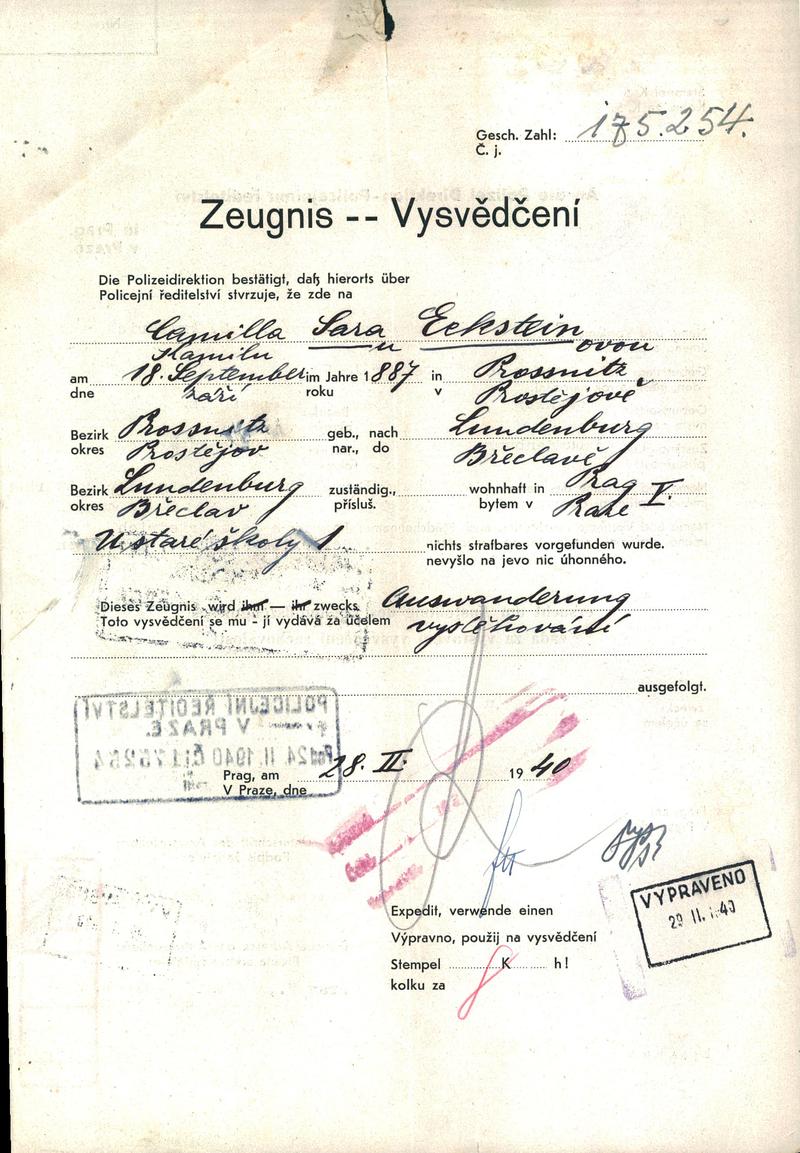 Gesch. Zahl: 175.254.
Č. j.
Zeugnis -- Vysvědčení
Die Polizeidirektion bestätigt, daß hierorts über
Policejní ředitelství stvrzuje, že zde na
Camilla Sara Eckstein
Kamilu u ovou
am 18. September im Jahre 1887 in Prossnitz
dne září roku v Prostějově
Bezirk Prossnitz geb., nach Lundenburg
okres Prostějov nar., do Břeclavě
Bezirk Lundenburg zuständig., wohnhaft in Prag V.
okres Břeclav přísluš. bytem v Praze
U staré školy 1 nichts strafbares vorgefunden wurde.
nevyšlo na jevo nic úhonného.
Dieses Zeugnis wird ihm — ihr zwecks Auswanderung
Toto vysvědčení se mu - jí vydává za účelem vystěhování
ausgefolgt.
POLICEJNÍ ŘEDITELSTVÍ
V PRAZE.
Pod 24. II. 1940 č.j. 175254
Prag, am 28. II. 1940
V Praze, dne
VYPRAVENO
29 II. 1940
Expedit, verwende einen
Výpravno, použij na vysvědčení
Stempel 8 K h!
kolku za